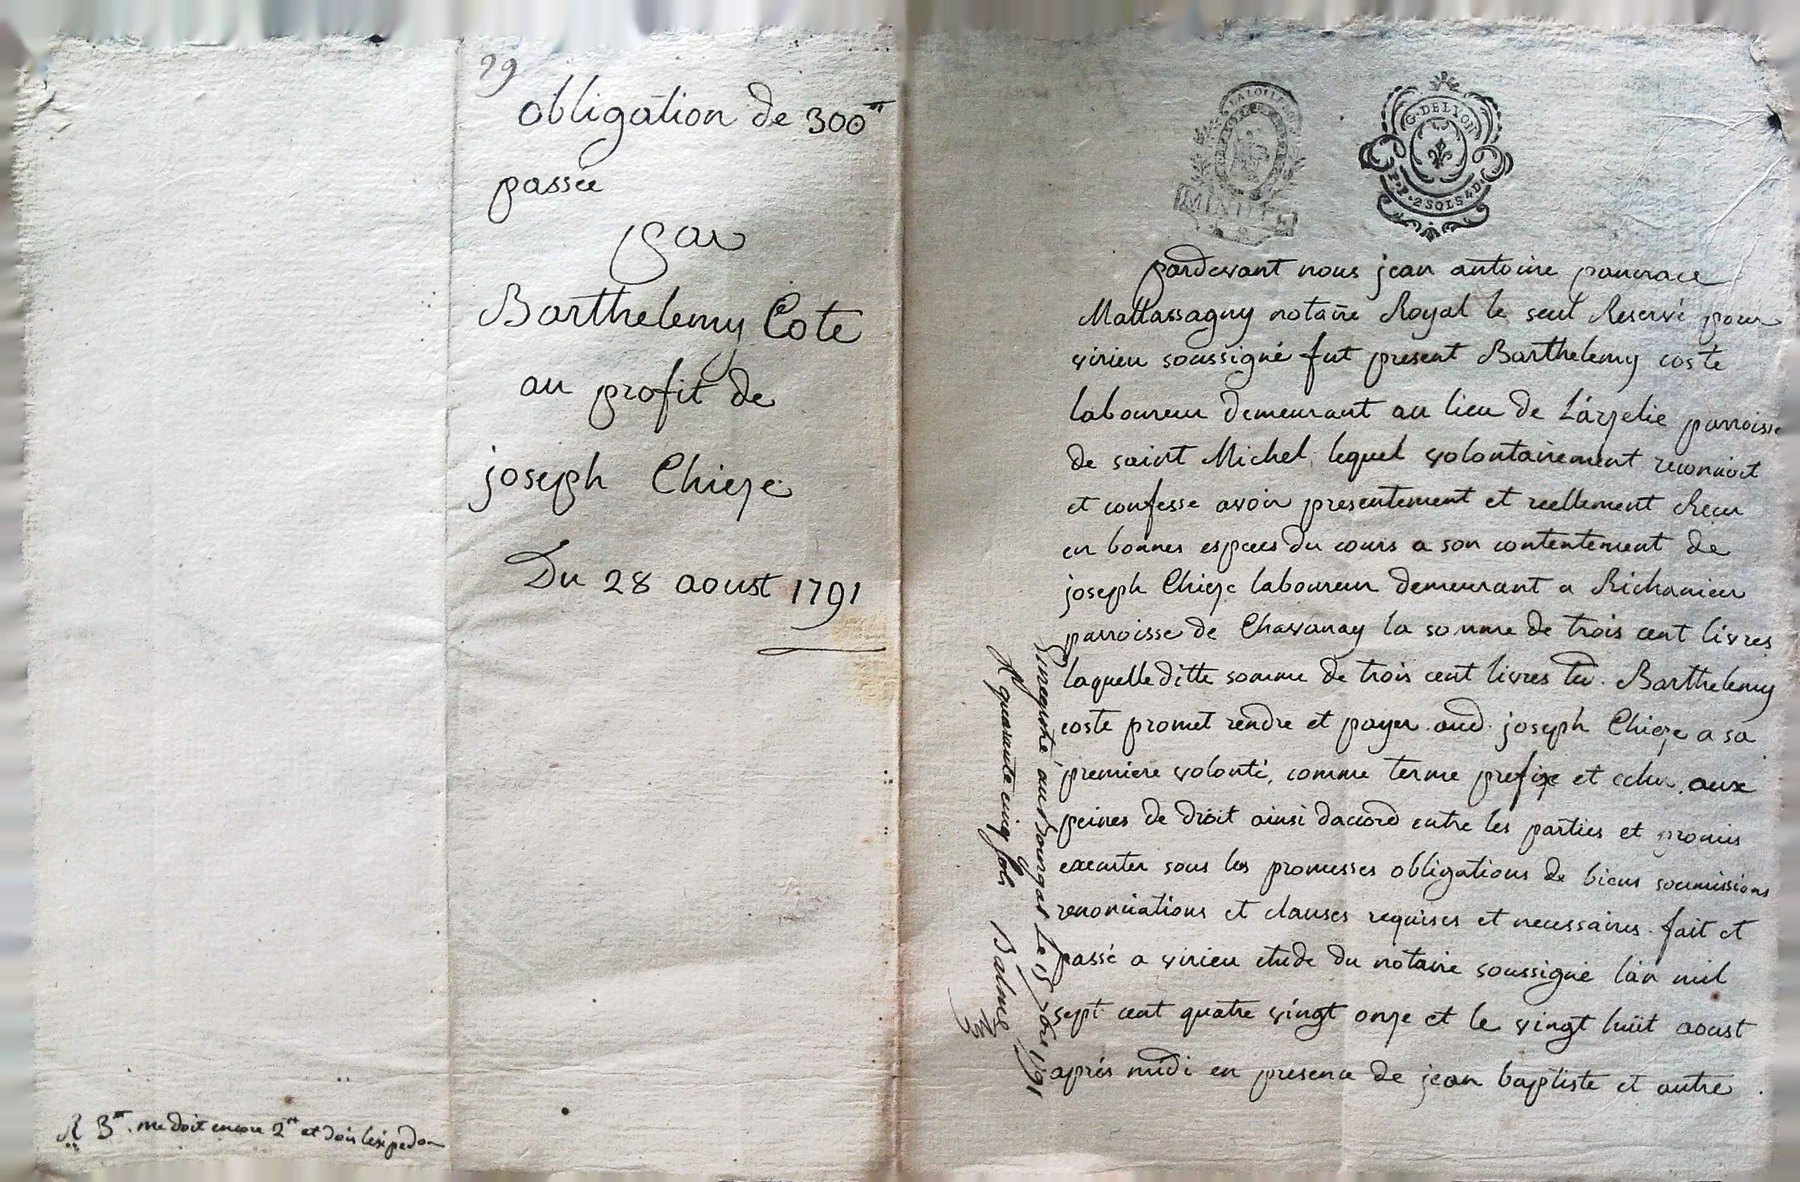 29
obligation de 300ᵗᵗ
passée
par
Barthelemy Cote
au profit de
joseph Chieze
Du 28 aoust 1791
R 3ᵗᵗ. me doit encore 2ᵗᵗ et dois lexpedon
LA LOI LE ROI
MINUTE
G. DE LYON
P.P. 2 SOLS 4 D.
pardevant nous jean antoine pancrace
Mattassagny notaire Royal le seul Reservé pour
virieu soussigné fut present Barthelemy coste
laboureur demeurant au lieu de Larzelie parroisse
de saint Michel, lequel volontairement reconnoit
et confesse avoir presentement et reellement Receu
en bonnes especes du cours a son contentement de
joseph Chieze laboureur demeurant a Richanieu
parroisse de Chavanay la somme de trois cent livres
laquelle ditte somme de trois cent livres led. Barthelemy
coste promet rendre et payer aud. joseph Chieze a sa
premiere volonté, comme terme prefixe et echu, aux
peines de droit ainsi d'accord entre les parties et promis
executer sous les promesses obligations de biens soumissions
renonciations et clauses requises et necessaires. fait et
passé a virieu etude du notaire soussigné l'an mil
sept cent quatre vingt onze et le vingt huit aoust
aprés midi en presence de jean baptiste et autre
Enregistré au bourgar Le 15 7bre 1791
R quarante cinq sols Balme